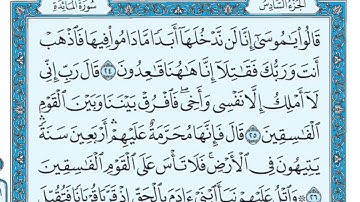 الجزء السادس سورة المائدة
قَالُوا۟ يَٰمُوسَىٰٓ إِنَّا لَن نَّدْخُلَهَآ أَبَدًا مَّا دَامُوا۟ فِيهَا فَٱذْهَبْ
أَنتَ وَرَبُّكَ فَقَٰتِلَآ إِنَّا هَٰهُنَا قَٰعِدُونَ ٢٤ قَالَ رَبِّ إِنِّى
لَآ أَمْلِكُ إِلَّا نَفْسِى وَأَخِى فَٱفْرُقْ بَيْنَنَا وَبَيْنَ ٱلْقَوْمِ
ٱلْفَٰسِقِينَ ٢٥ قَالَ فَإِنَّهَا مُحَرَّمَةٌ عَلَيْهِمْ أَرْبَعِينَ سَنَةً
يَتِيهُونَ فِى ٱلْأَرْضِ فَلَا تَأْسَ عَلَى ٱلْقَوْمِ ٱلْفَٰسِقِينَ
٢٦ وَٱتْلُ عَلَيْهِمْ نَبَأَ ٱبْنَىْ ءَادَمَ بِٱلْحَقِّ إِذْ قَرَّبَا قُرْبَانًا فَتُقُبِّلَ